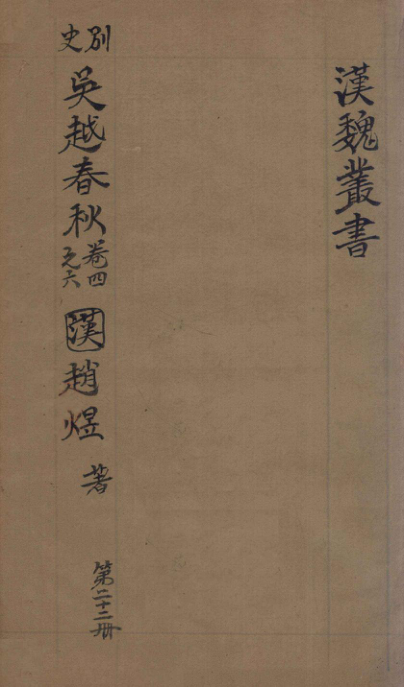 漢魏叢書
別史
吳越春秋卷四之六
漢趙煜著
第二十二冊